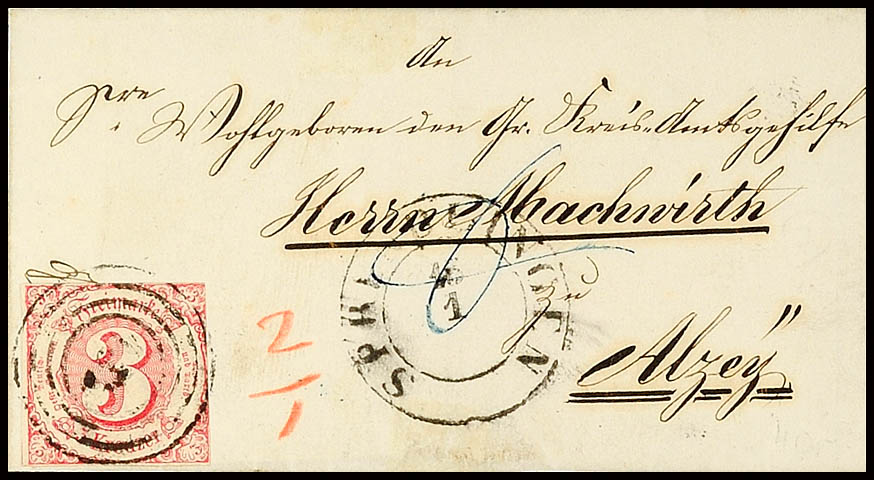 An
Sre Wohlgeboren den Gr. Kreis-Amtsgehilfe
Herrn Machwirth
zu
Alzeÿ
SPRENDLINGEN
1
2
1
3
Kreuzer